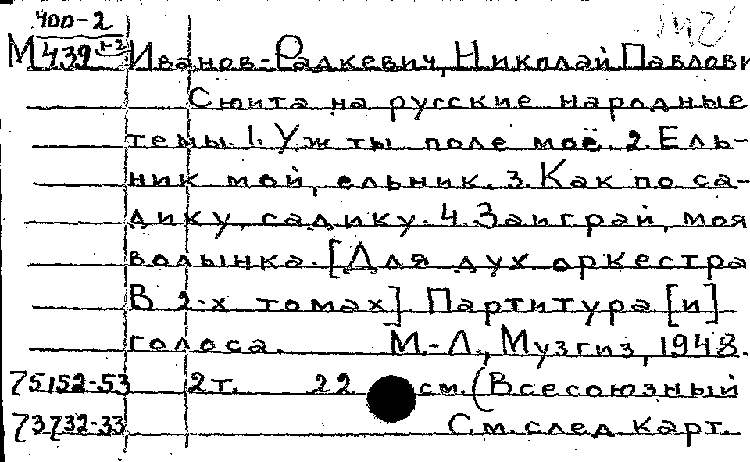 400-2
М 439 1-2 Иванов-Радкевич, Николай Павлови
Сюита на русские народные
темы. 1. Уж ты поле моё. 2. Ель-
ник мой, ельник. 3. Как по са-
дику, садику. 4. Заиграй, моя
волынка. [Для дух оркестра
В 2-х томах] Партитура [и]
голоса. М.-Л., Музгиз, 1948.
75152-53 2т. 22 см. (Всесоюзный
73732-33 См. след карт.